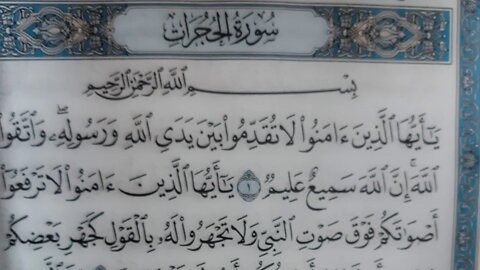 سُورَةُ الْحُجُرَاتِ
بِسْمِ اللَّهِ الرَّحْمَٰنِ الرَّحِيمِ
يَٰٓأَيُّهَا ٱلَّذِينَ ءَامَنُوا۟ لَا تُقَدِّمُوا۟ بَيْنَ يَدَىِ ٱللَّهِ وَرَسُولِهِۦ ۖ وَٱتَّقُوا۟
ٱللَّهَ ۚ إِنَّ ٱللَّهَ سَمِيعٌ عَلِيمٌ ١ يَٰٓأَيُّهَا ٱلَّذِينَ ءَامَنُوا۟ لَا تَرْفَعُوٓا۟
أَصْوَٰتَكُمْ فَوْقَ صَوْتِ ٱلنَّبِىِّ وَلَا تَجْهَرُوا۟ لَهُۥ بِٱلْقَوْلِ كَجَهْرِ بَعْضِكُمْ